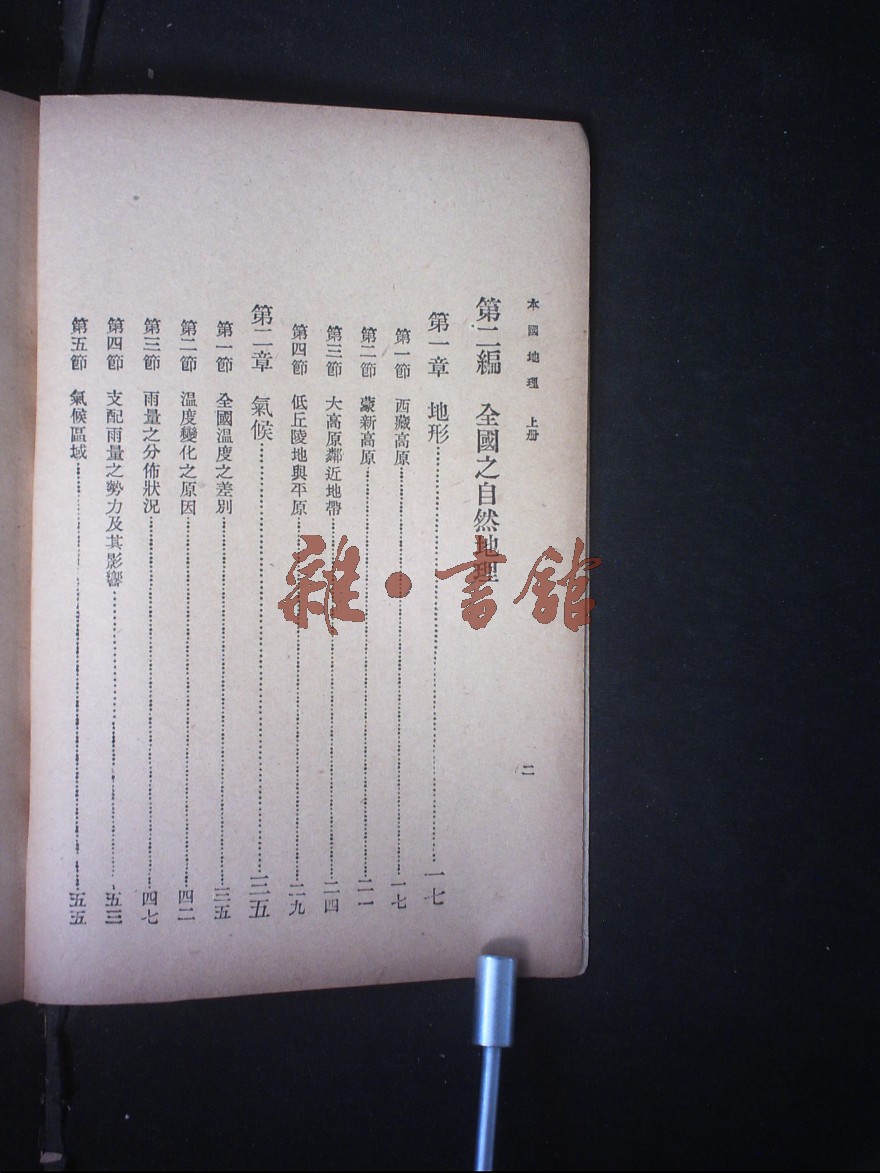 本國地理 上册
二
第二編 全國之自然地理
第一章 地形……一七
第一節 西藏高原……一七
第二節 蒙新高原……二一
第三節 大高原鄰近地帶……二四
第四節 低丘陵地與平原……二九
第二章 氣候……三五
第一節 全國溫度之差別……三五
第二節 溫度變化之原因……四二
第三節 雨量之分佈狀況……四七
第四節 支配雨量之勢力及其影響……五三
第五節 氣候區域……五五
雜·書館